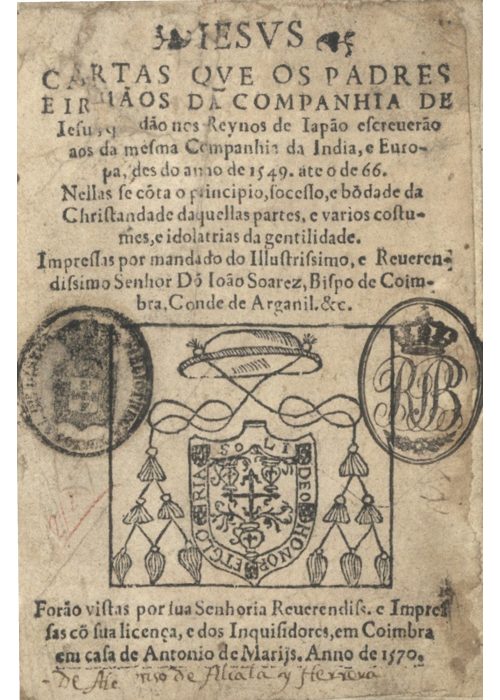 IESVS
CARTAS QVE OS PADRES
E IRMÃOS DA COMPANHIA DE
Iesu, q dão nos Reynos de Iapão escreuerão
aos da mesma Companhia da India, e Euro-
pa, des do anno de 1549. ate o de 66.
Nellas se cõta o principio, socesso, e bõdade da
Christandade daquellas partes, e varios costu-
mes, e idolatrias da gentilidade.
Impressas por mandado do Illustrissimo, e Reueren-
dissimo Senhor Dõ Ioão Soarez, Bispo de Coim-
bra, Conde de Arganil. &c.
SOLI DEO HONOR ET GLORIA
Forão vistas por sua Senhoria Reuerendiss. e Impres
sas cõ sua licença, e dos Inquisidores, em Coimbra
em casa de Antonio de Marijs. Anno de 1570.
de Alcala y Herrera